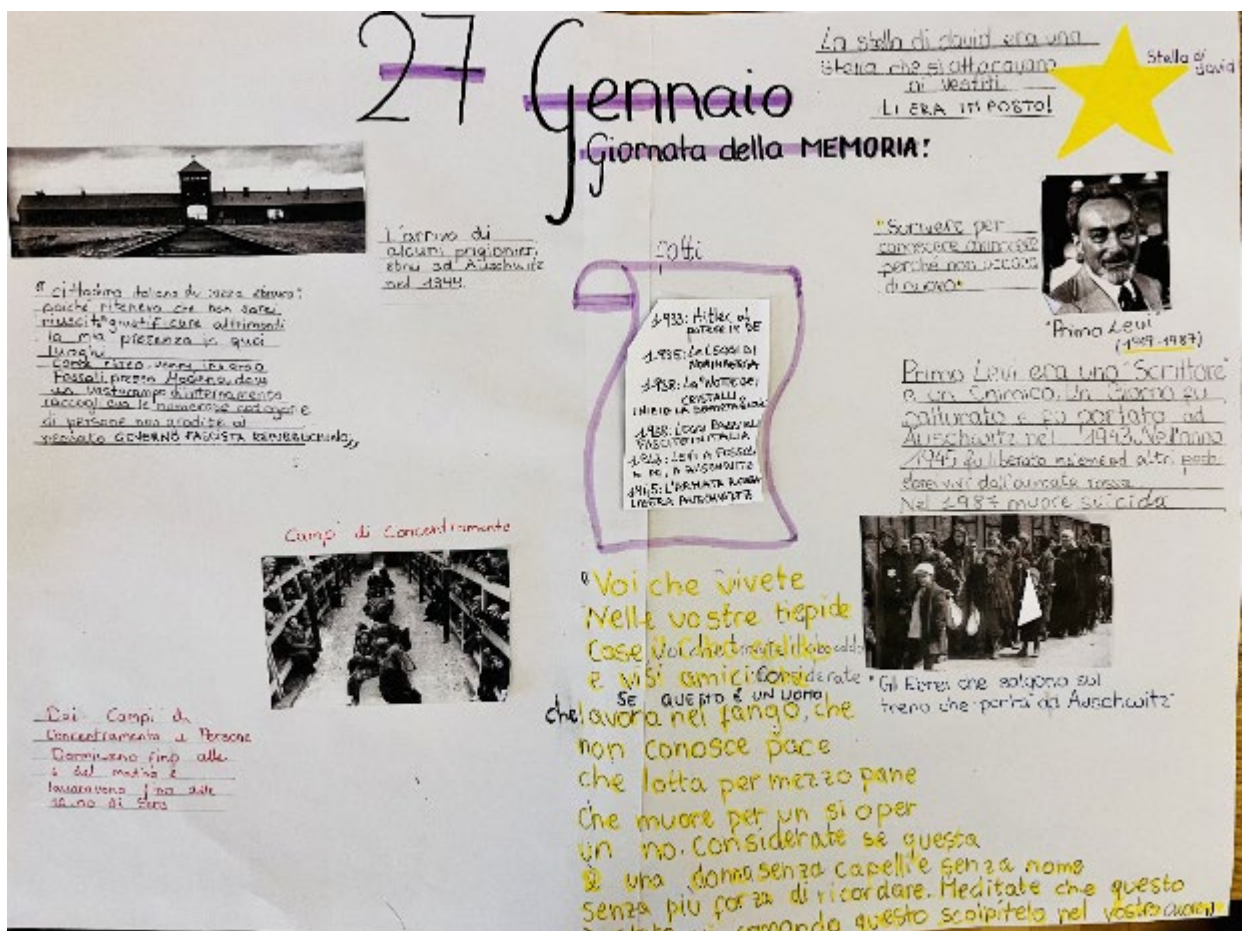 27 Gennaio
Giornata della MEMORIA!
La stella di david era una
stella che si attacavano
ai vestiti.
LI ERA IMPOSTO!
Stella di
david
L'arrivo di
alcuni prigionieri
ebrei ad Auschwitz
nel 1944.
"cittadino italiano di razza ebraica"
poiché ritenevo che non sarei
riuscito a giustificare altrimenti
la mia presenza in quei
luoghi
venni inviato a
Fossoli, presso Modena, dove
un vasto campo d'internamento
le numerose categorie
di persone non gradite al
GOVERNO FASCISTA REPUBBLICHINO"
Fatti
1933: Hitler al
potere in DE
1935: LE LEGGI DI
NORIMBERGA
1938: LA NOTTE DEI
CRISTALLI,
INIZIO LA DEPORTAZIONE
1938: LEGGI RAZZIALI
FASCISTE IN ITALIA
LEVI A FOSSOLI
E POI A AUSCHWITZ
1945: L'ARMATA ROSSA
LIBERA AUSCHWITZ
"Scrivere per
conoscere, conoscere
perché non accada
di nuovo"
"Primo Levi"
(1919-1987)
Primo Levi era uno "Scrittore"
e un Chimico. Un Giorno fu
catturato e fu portato ad
Auschwitz nel 1943. Nell'anno
1945 fu liberato insieme ad altri pochi
ebrei vivi dall'armata rossa.
Nel 1987 muore suicida
Campi di Concentramento
Dei Campi di
Concentramento le Persone
Dormivano fino alle
del matino e
lavoravano fino alle
di Sera
"Gli Ebrei che salgono sul
treno che porta ad Auschwitz"
"Voi che vivete
Nelle vostre tiepide
case Voi che trovate il cibo caldo
e visi amici: Considerate
SE QUESTO È UN UOMO
che lavora nel fango, che
non conosce pace
che lotta per mezzo pane
che muore per un si o per
un no. Considerate se questa
è una donna senza capelli e senza nome
senza più forza di ricordare. Meditate che questo
comando questo scolpitelo nel vostro cuore"